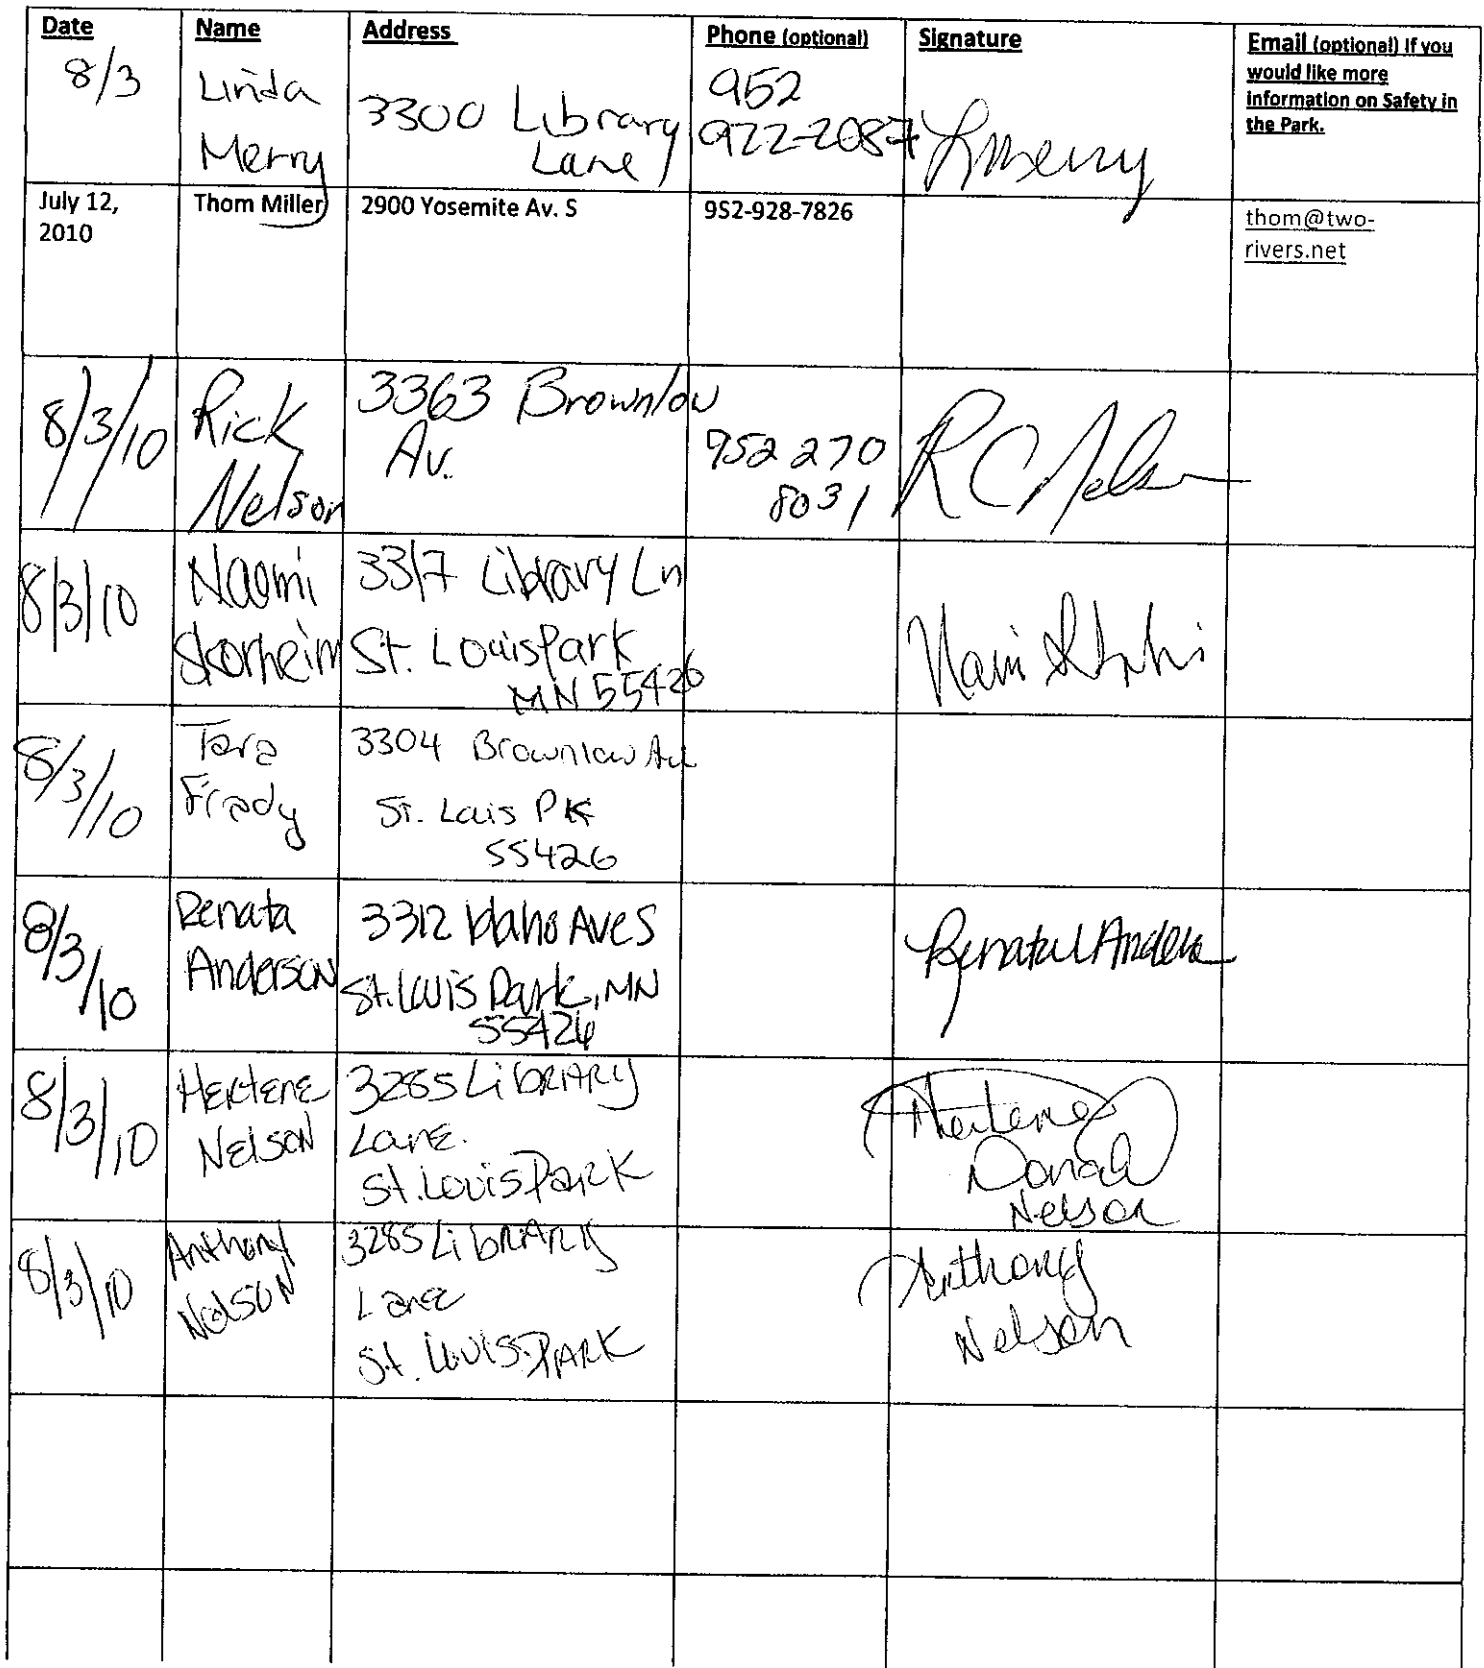 Date Name Address Phone (optional) Signature Email (optional) If you
would like more
information on Safety in
the Park.
8/3 Linda
Merry
3300 Library
Lane
952
922-2087
LMerry
July 12,
2010
Thom Miller
2900 Yosemite Av. S
952-928-7826
thom@two-
rivers.net
8/3/10
Rick
Nelson
3363 Brownlow
Av.
952 270
8031
RC Nelson
8/3/10
Naomi
Skorheim
3317 Library Ln
St. Louis Park
MN 55426
8/3/10
Tara
Frady
3304 Brownlow Av
St. Louis Pk
55426
8/3/10
Renata
Anderson
3312 Idaho Ave S
St. Louis Park, MN
55426
8/3/10
Hertene
Nelson
3285 Library
Lane.
St. Louis Park
Hertene
Nelson
8/3/10
Anthony
Nelson
3285 Library
Lane
St. Louis Park
Anthony
Nelson